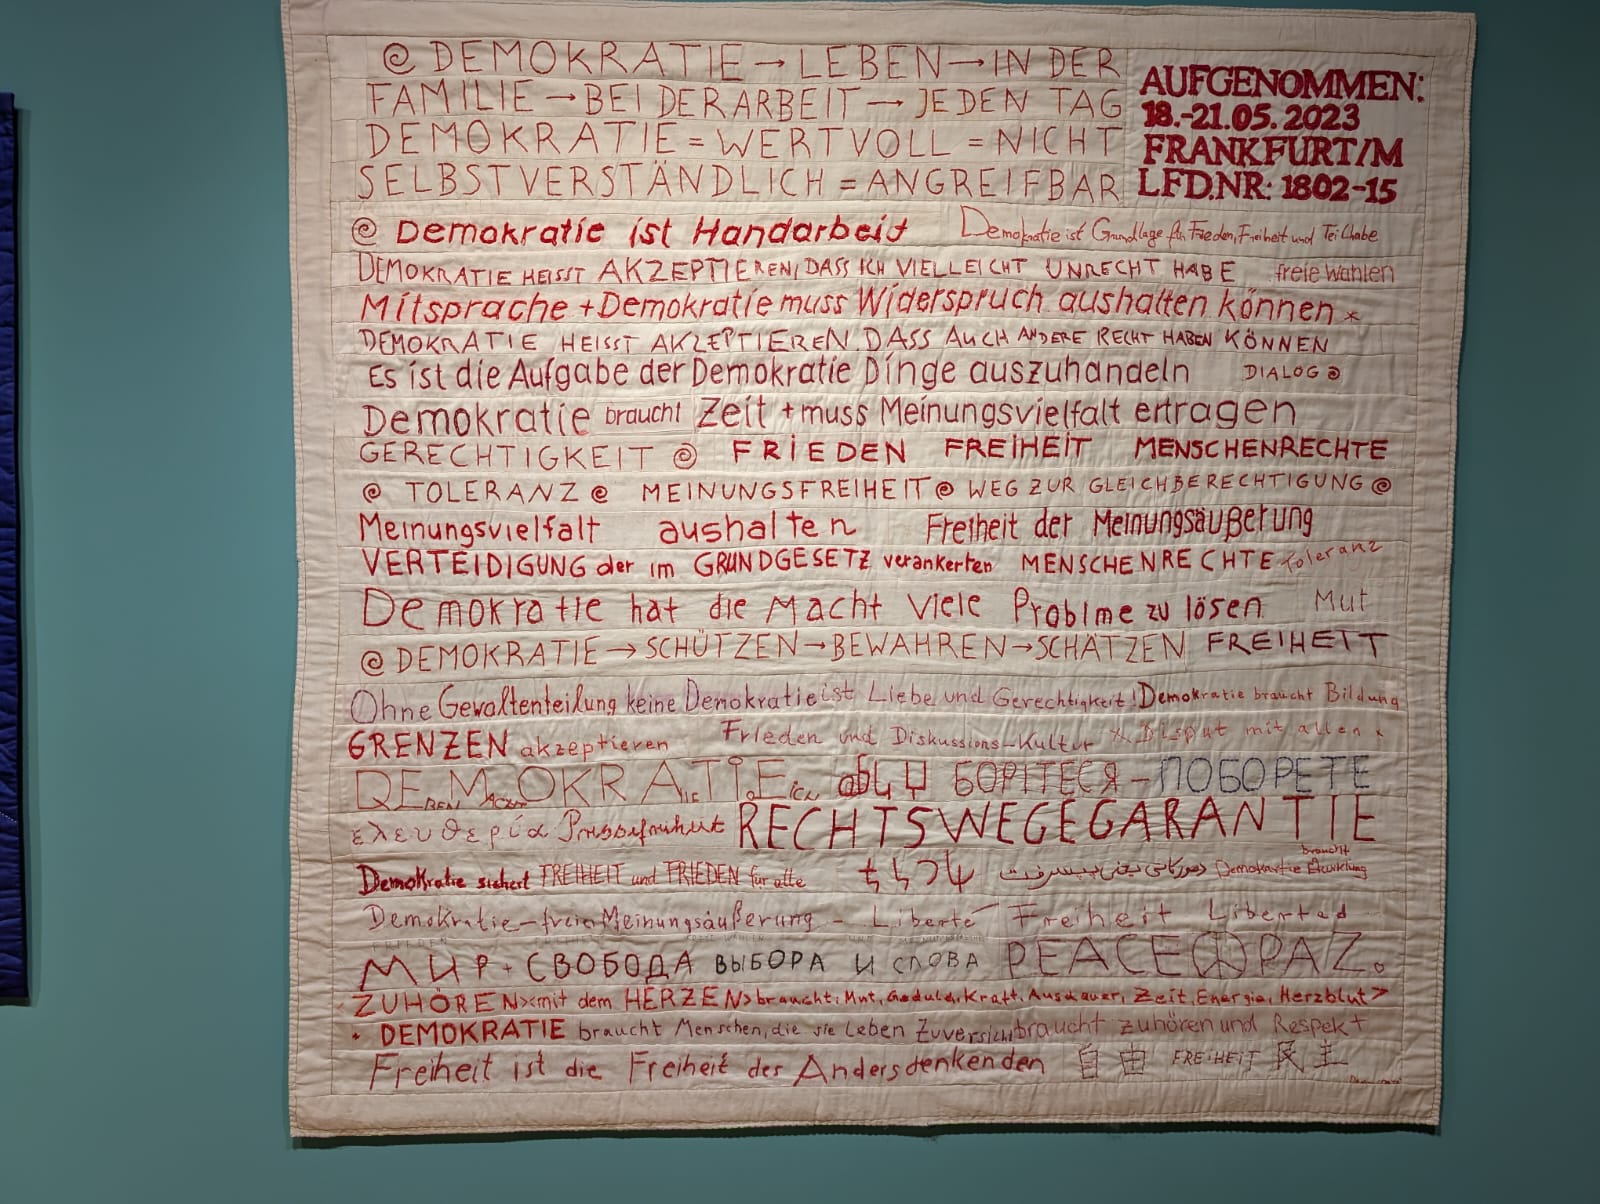 DEMOKRATIE → LEBEN → IN DER
FAMILIE → BEI DER ARBEIT → JEDEN TAG
DEMOKRATIE = WERTVOLL = NICHT
SELBSTVERSTÄNDLICH = ANGREIFBAR
AUFGENOMMEN:
18.-21.05.2023
FRANKFURT/M
LFD.NR: 1802-15
Demokratie ist Handarbeit Demokratie ist Grundlage für Frieden, Freiheit und Teilhabe
DEMOKRATIE HEISST AKZEPTIEREN, DASS ICH VIELLEICHT UNRECHT HABE freie Wahlen
Mitsprache + Demokratie muss Widerspruch aushalten können *
DEMOKRATIE HEISST AKZEPTIEREN DASS AUCH ANDERE RECHT HABEN KÖNNEN
Es ist die Aufgabe der Demokratie Dinge auszuhandeln DIALOG
Demokratie braucht Zeit + muss Meinungsvielfalt ertragen
GERECHTIGKEIT FRIEDEN FREIHEIT MENSCHENRECHTE
TOLERANZ MEINUNGSFREIHEIT WEG ZUR GLEICHBERECHTIGUNG
Meinungsvielfalt aushalten Freiheit der Meinungsäußerung
VERTEIDIGUNG der im GRUNDGESETZ verankerten MENSCHENRECHTE Toleranz
Demokratie hat die Macht viele Problme zu lösen Mut
DEMOKRATIE → SCHÜTZEN → BEWAHREN → SCHÄTZEN FREIHEIT
Ohne Gewaltenteilung keine Demokratie ist Liebe und Gerechtigkeit! Demokratie braucht Bildung
GRENZEN akzeptieren Frieden und Diskussions-Kultur Disput mit allen
DEMOKRATIE БОРІТЕСЯ - ПОБОРЕТЕ
ελευθερία Pressefreiheit RECHTSWEGEGARANTIE
Demokratie sichert FREIHEIT und FRIEDEN für alle braucht Demokratie
Demokratie - freie Meinungsäußerung - Liberté Freiheit Libertad
МИР + СВОБОДА ВЫБОРА И СЛОВА PEACE PAZ.
ZUHÖREN > < mit dem HERZEN > braucht: Mut, Geduld, Kraft, Ausdauer, Zeit, Energie, Herzblut >
DEMOKRATIE braucht Menschen, die sie leben Zuversicht braucht zuhören und Respekt
Freiheit ist die Freiheit des Andersdenkenden 自由 FREIHEIT 民主